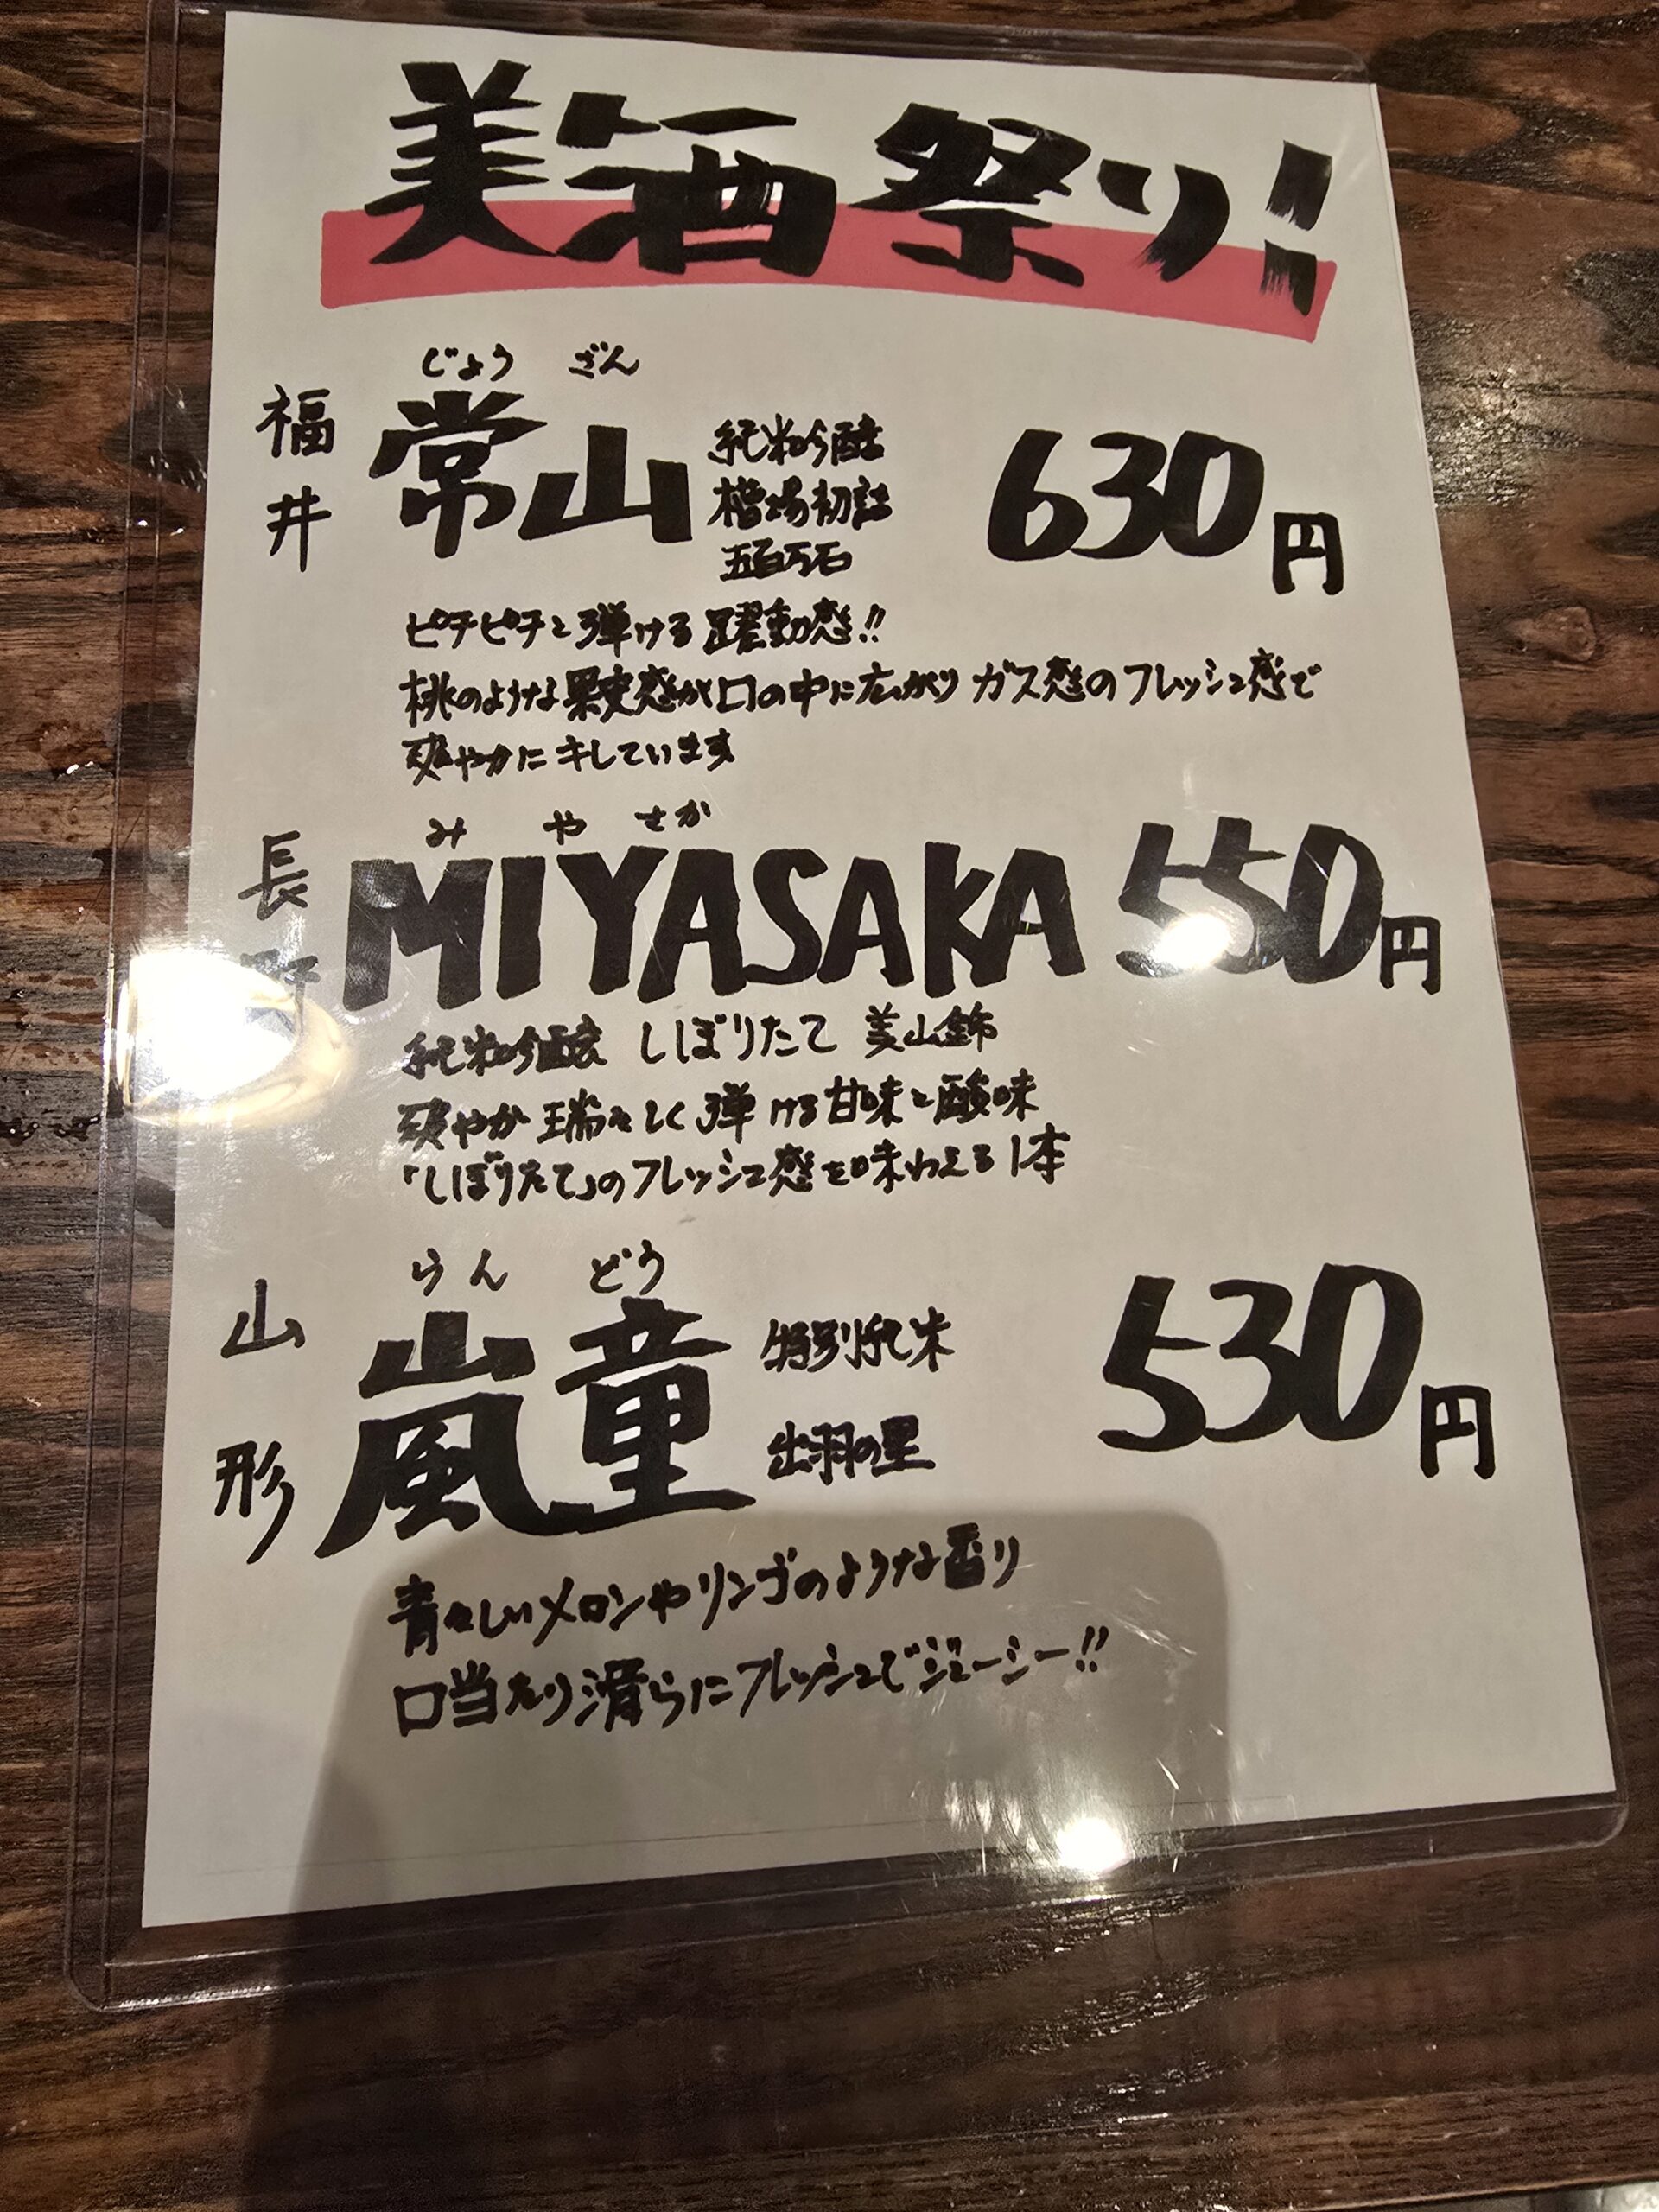 美酒祭り!
じょう ざん
福井 常山 純米吟醸 630円
槽場初詰
五百万石
ピチピチと弾ける躍動感!!
桃のような果実感が口の中に広がり ガス感のフレッシュ感で
爽やかにキレています
み や さか
長野 MIYASAKA 550円
純米吟醸 しぼりたて 美山錦
爽やか 瑞々しく弾ける甘味と酸味
「しぼりたて」のフレッシュ感を味わえる1本
らん どう
山形 嵐童 特別純米 530円
出羽の里
青々しいメロンやリンゴのような香り
口当たり滑らにフレッシュでジューシー!!